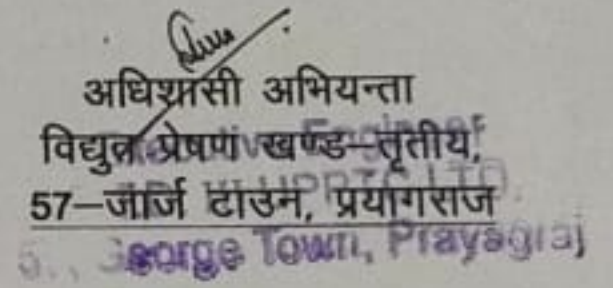 अधिशासी अभियन्ता
विद्युत प्रेषण खण्ड–तृतीय,
57–जार्ज टाउन, प्रयागराज
George Town, Prayagraj